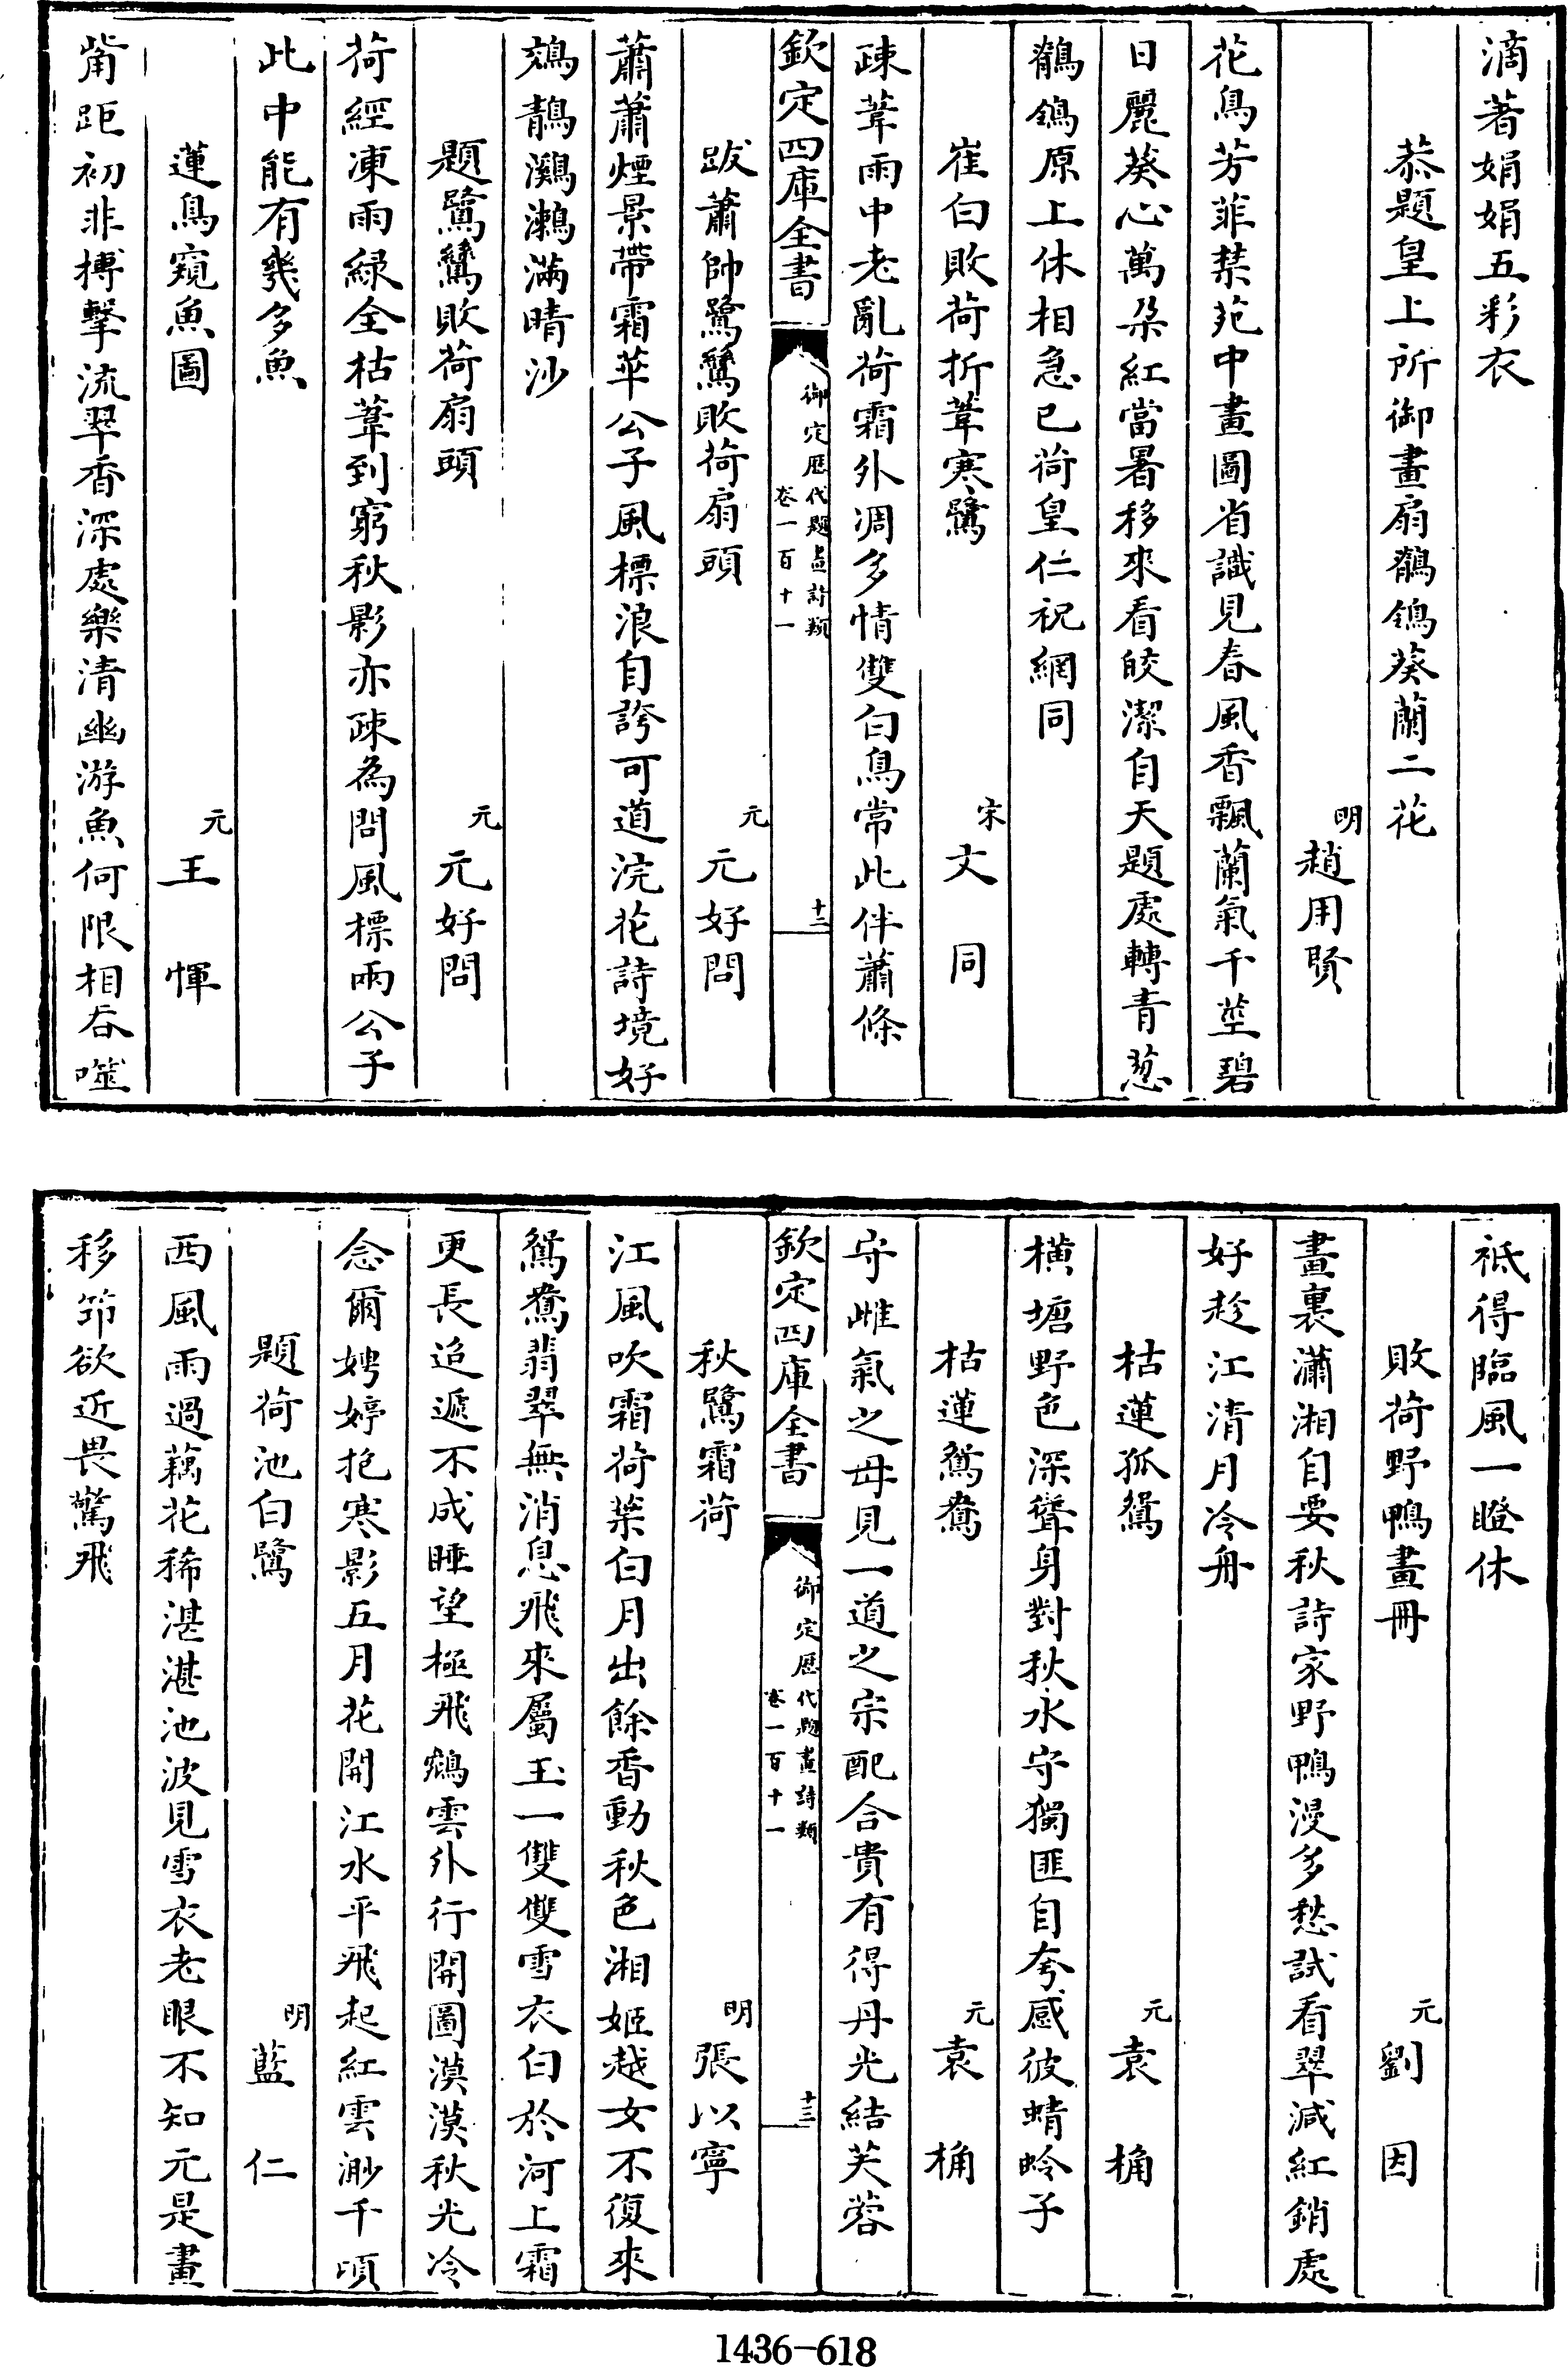 滴著娟娟五彩衣
恭題皇上所御畫扇鶺鴒葵蘭二花
明趙用賢
花鳥芳菲禁苑中畫圖省識見春風香飄蘭氣千莖碧
日麗葵心萬朵紅當暑移來看皎潔自天題處轉青葱
鶺鴒原上休相急已荷皇仁祝網同
崔白敗荷折葦寒鷺 宋文同
疎葦雨中老亂荷霜外凋多情雙白鳥常此伴蕭條
欽定四庫全書 御定歷代題畫詩類 卷一百十一 十二
跋蕭帥鷺鷥敗荷扇頭 元元好問
蕭蕭煙景帶霜華公子風標浪自誇可道浣花詩境好
鵁鶄鸂鶒滿晴沙
題鷺鷥敗荷扇頭 元元好問
荷經凍雨綠全枯葦到窮秋影亦疎為問風標兩公子
此中能有幾多魚
蓮鳥窺魚圖 元王惲
觜距初非搏擊流翠香深處樂清幽游魚何限相吞噬
祗得臨風一瞪休
敗荷野鴨畫冊 元劉因
畫裏瀟湘自要秋詩家野鴨漫多愁試看翠減紅銷處
好趁江清月冷舟
枯蓮孤鴛 元袁桷
橫塘野色深聳身對秋水守獨匪自夸感彼蜻蛉子
枯蓮鴛鴦 元袁桷
守雌氣之母見一道之宗配合貴有得丹光結芙蓉
欽定四庫全書 御定歷代題畫詩類 卷一百十一 十三
秋鷺霜荷 明張以寧
江風吹霜荷葉白月出餘香動秋色湘姬越女不復來
鴛鴦翡翠無消息飛來屬玉一雙雙雪衣白於河上霜
更長迢遞不成睡望極飛鴻雲外行開圖漠漠秋光冷
念爾娉婷抱寒影五月花開江水平飛起紅雲渺千頃
題荷池白鷺 明藍仁
西風雨過藕花稀湛湛池波見雪衣老眼不知元是畫
移笻欲近畏驚飛
1436-618